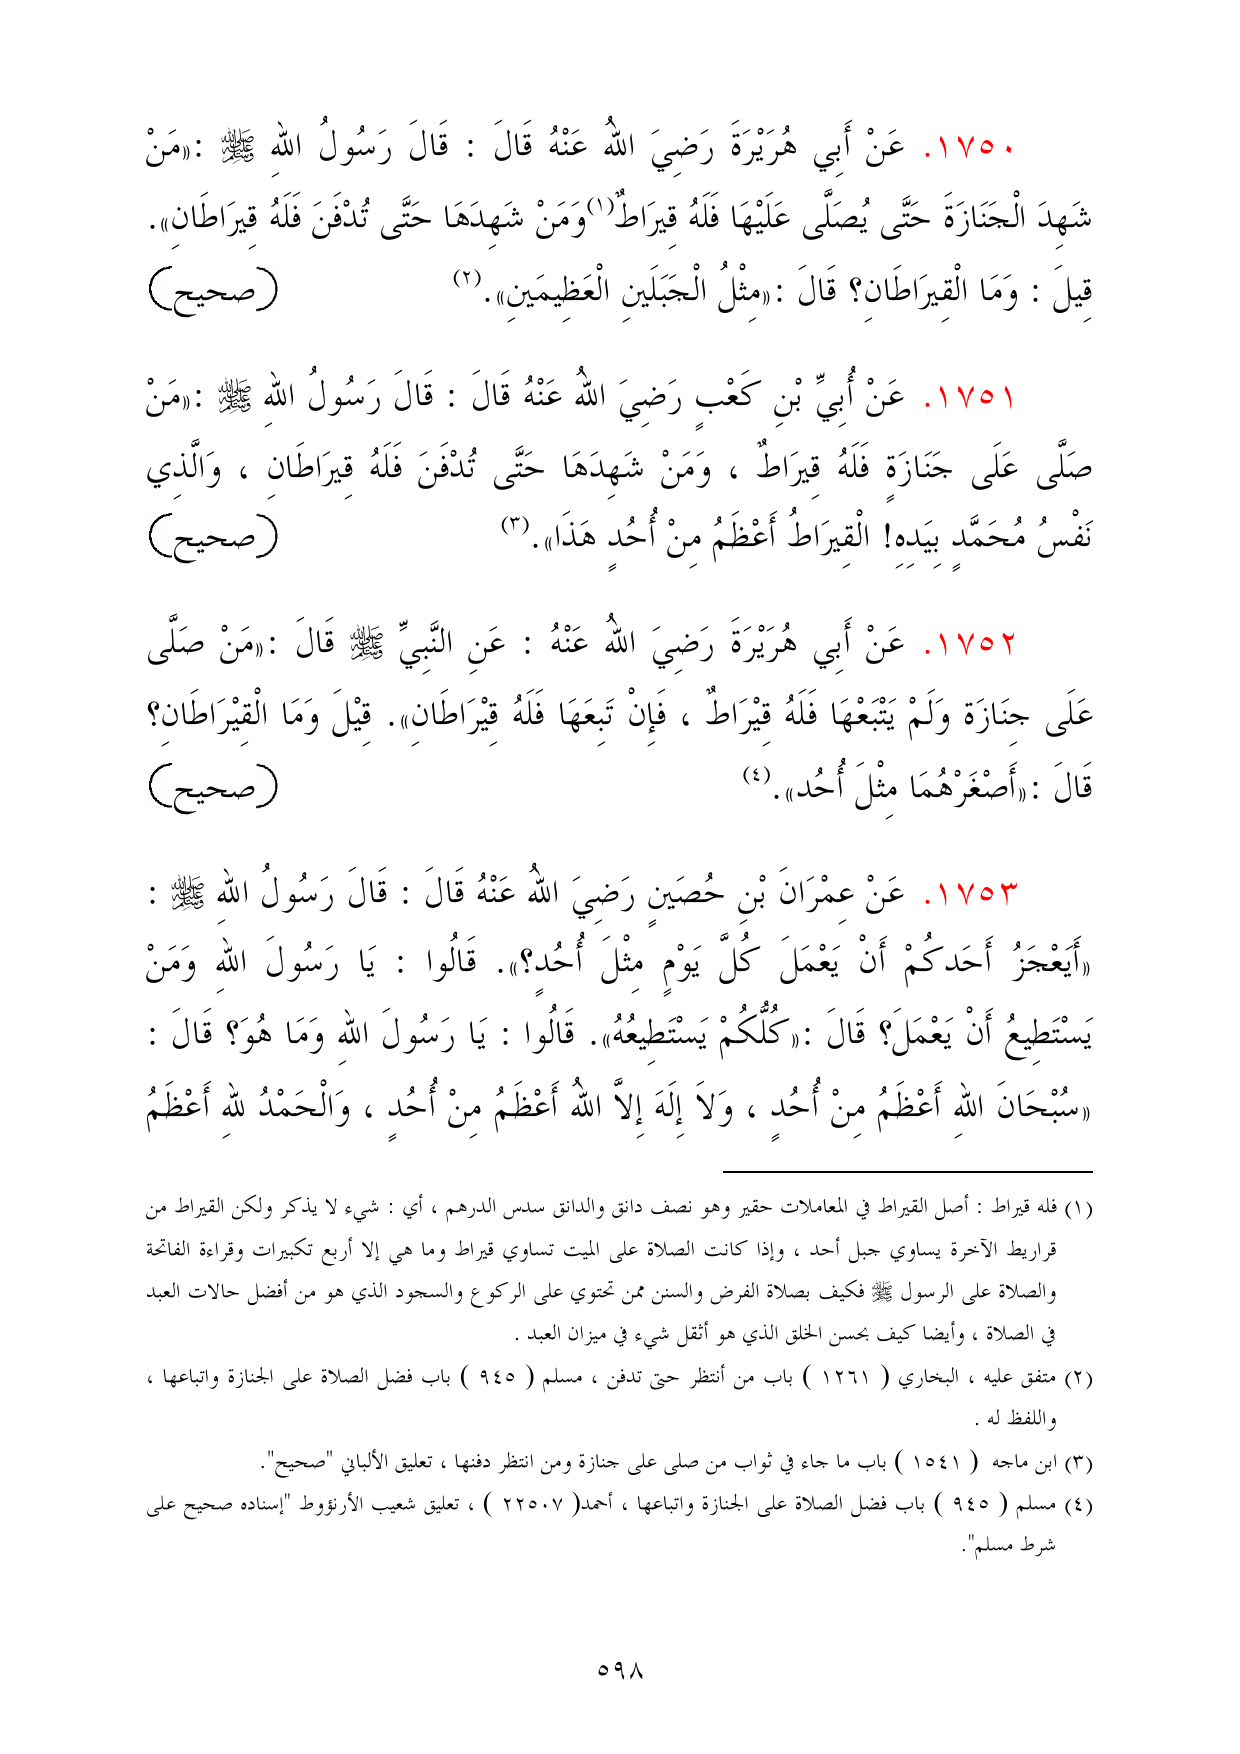 ١٧٥٠. عَنْ أَبِي هُرَيْرَةَ رَضِيَ اللهُ عَنْهُ قَالَ : قَالَ رَسُولُ اللهِ ﷺ :«مَنْ
شَهِدَ الْجَنَازَةَ حَتَّى يُصَلَّى عَلَيْهَا فَلَهُ قِيرَاطٌ(١)وَمَنْ شَهِدَهَا حَتَّى تُدْفَنَ فَلَهُ قِيرَاطَانِ».
قِيلَ : وَمَا الْقِيرَاطَانِ؟ قَالَ :«مِثْلُ الْجَبَلَينِ الْعَظِيمَينِ».(٢) (صحيح)
١٧٥١. عَنْ أُبِيِّ بْنِ كَعْبٍ رَضِيَ اللهُ عَنْهُ قَالَ : قَالَ رَسُولُ اللهِ ﷺ :«مَنْ
صَلَّى عَلَى جَنَازَةٍ فَلَهُ قِيرَاطٌ ، وَمَنْ شَهِدَهَا حَتَّى تُدْفَنَ فَلَهُ قِيرَاطَانِ ، وَالَّذِي
نَفْسُ مُحَمَّدٍ بِيَدِهِ! الْقِيرَاطُ أَعْظَمُ مِنْ أُحُدٍ هَذَا».(٣) (صحيح)
١٧٥٢. عَنْ أَبِي هُرَيْرَةَ رَضِيَ اللهُ عَنْهُ : عَنِ النَّبِيِّ ﷺ قَالَ :«مَنْ صَلَّى
عَلَى جِنَازَة وَلَمْ يَتْبَعْهَا فَلَهُ قِيْرَاطٌ ، فَإِنْ تَبِعَهَا فَلَهُ قِيْرَاطَانِ». قِيْلَ وَمَا الْقِيْرَاطَانِ؟
قَالَ :«أَصْغَرْهُمَا مِثْلَ أُحُد».(٤) (صحيح)
١٧٥٣. عَنْ عِمْرَانَ بْنِ حُصَينٍ رَضِيَ اللهُ عَنْهُ قَالَ : قَالَ رَسُولُ اللهِ ﷺ :
«أَيَعْجَزُ أَحَدكُمْ أَنْ يَعْمَلَ كُلَّ يَوْمٍ مِثْلَ أُحُدٍ؟». قَالُوا : يَا رَسُولَ اللهِ وَمَنْ
يَسْتَطِيعُ أَنْ يَعْمَلَ؟ قَالَ :«كُلُّكُمْ يَسْتَطِيعُهُ». قَالُوا : يَا رَسُولَ اللهِ وَمَا هُوَ؟ قَالَ :
«سُبْحَانَ اللهِ أَعْظَمُ مِنْ أُحُدٍ ، وَلاَ إِلَهَ إِلاَّ اللهُ أَعْظَمُ مِنْ أُحُدٍ ، وَالْحَمْدُ للهِ أَعْظَمُ
(١) فله قيراط : أصل القيراط في المعاملات حقير وهو نصف دانق والدانق سدس الدرهم ، أي : شيء لا يذكر ولكن القيراط من
قراريط الآخرة يساوي جبل أحد ، وإذا كانت الصلاة على الميت تساوي قيراط وما هي إلا أربع تكبيرات وقراءة الفاتحة
والصلاة على الرسول ﷺ فكيف بصلاة الفرض والسنن ممن تحتوي على الركوع والسجود الذي هو من أفضل حالات العبد
في الصلاة ، وأيضا كيف بحسن الخلق الذي هو أثقل شيء في ميزان العبد .
(٢) متفق عليه ، البخاري ( ١٢٦١ ) باب من أنتظر حتى تدفن ، مسلم ( ٩٤٥ ) باب فضل الصلاة على الجنازة واتباعها ،
واللفظ له .
(٣) ابن ماجه ( ١٥٤١ ) باب ما جاء في ثواب من صلى على جنازة ومن انتظر دفنها ، تعليق الألباني "صحيح".
(٤) مسلم ( ٩٤٥ ) باب فضل الصلاة على الجنازة واتباعها ، أحمد( ٢٢٥٠٧ ) ، تعليق شعيب الأرنؤوط "إسناده صحيح على
شرط مسلم".
٥٩٨